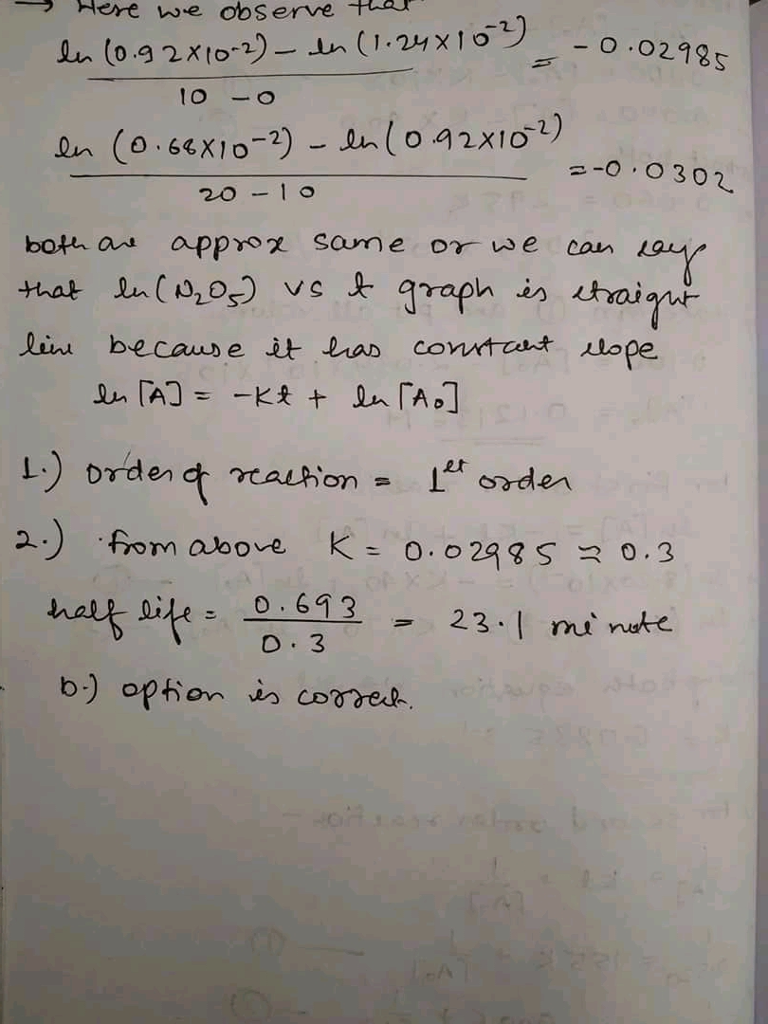 → Here we observe that
ln (0.92×10-2) - ln (1.24×10-2) = -0.02985
10 - 0
ln (0.68×10-2) - ln (0.92×10-2) = -0.0302
20 - 10
both are approx same or we can say
that ln(N2O5) vs t graph is straight
line because it has constant slope
ln [A] = -Kt + ln [A0]
1.) order of reaction = 1st order
2.) from above K = 0.02985 ≈ 0.3
half life = 0.693 / 0.3 = 23.1 minute
b.) option is correct.